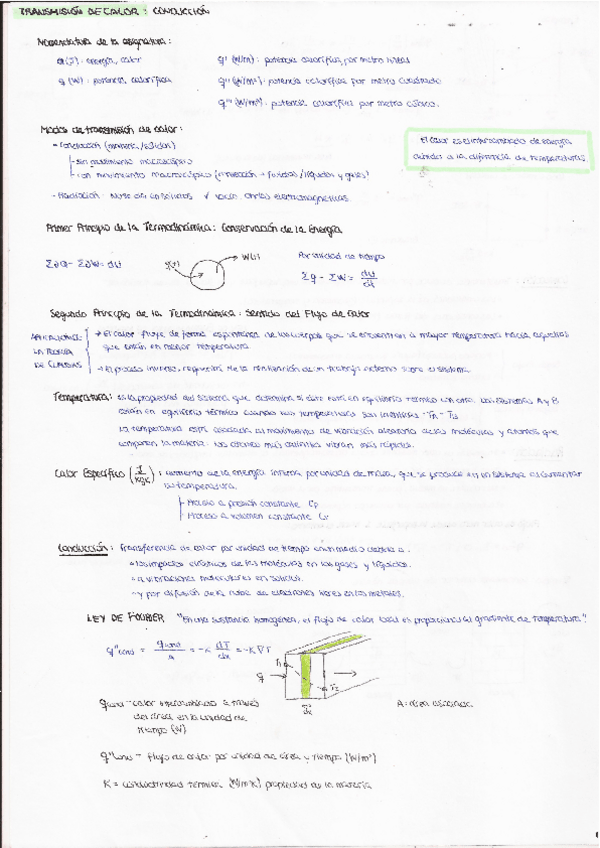 TRANSMISIÓN DE CALOR: CONDUCCIÓN
Nomenclatura de la asignatura:
Q (J): energía, calor
q' (W/m): potencia calorífica, por metro lineal
q (W): potencia calorífica
q'' (W/m²): potencia calorífica por metro cuadrado
q''' (W/m³): potencia calorífica por metro cúbico.
Modos de transmisión de calor:
El calor es el intercambio de energía
debido a la diferencia de temperaturas.
- Conducción (materia/sólidos)
- sin movimiento macroscópico
- con movimiento macroscópico (convección → fluidos/líquidos y gases)
- Radiación: ondas electromagnéticas.
Primer Principio de la Termodinámica: Conservación de la Energía
Σ∂Q - Σ∂W = dU
q(t)
W(t)
Por unidad de tiempo
Σq - ΣW = dU/dt
Segundo Principio de la Termodinámica: Sentido del Flujo de Calor
LA TEORÍA
DE CLAUSIUS
→ El calor fluye de forma espontánea de los cuerpos que se encuentran a mayor temperatura hacia aquellos
que están en menor temperatura
→ El proceso inverso, requerirá de la realización de un trabajo externo sobre el sistema.
Temperatura: es la propiedad del sistema que determina si éste está en equilibrio térmico con otro. Los sistemas A y B
están en equilibrio térmico cuando sus temperaturas son idénticas TA = TB
La temperatura está asociada al movimiento de vibración aleatorio de las moléculas y átomos que
componen la materia. Los átomos más calientes vibran más rápidos.
Calor Específico (J/kgK): aumento de la energía interna por unidad de masa, que se produce en un sistema al aumentar
su temperatura.
- Proceso a presión constante Cp
- Proceso a volumen constante Cv
Conducción: Transferencia de calor por unidad de tiempo en un medio debida a:
· los impactos elásticos de las moléculas en los gases y líquidos.
· a vibraciones moleculares en sólidos.
· y por difusión de la nube de electrones libres en los metales.
LEY DE FOURIER "En una sustancia homogénea, el flujo de calor local es proporcional al gradiente de temperatura".
q''cond = qcond/A = -K dT/dx = -K∇T
q
T1
T2
dx
qcond - calor intercambiado a través
del área, en la unidad de
tiempo (W)
q''cond - flujo de calor por unidad de área y tiempo (W/m²)
K = conductividad térmica (W/mK) propiedad de la materia